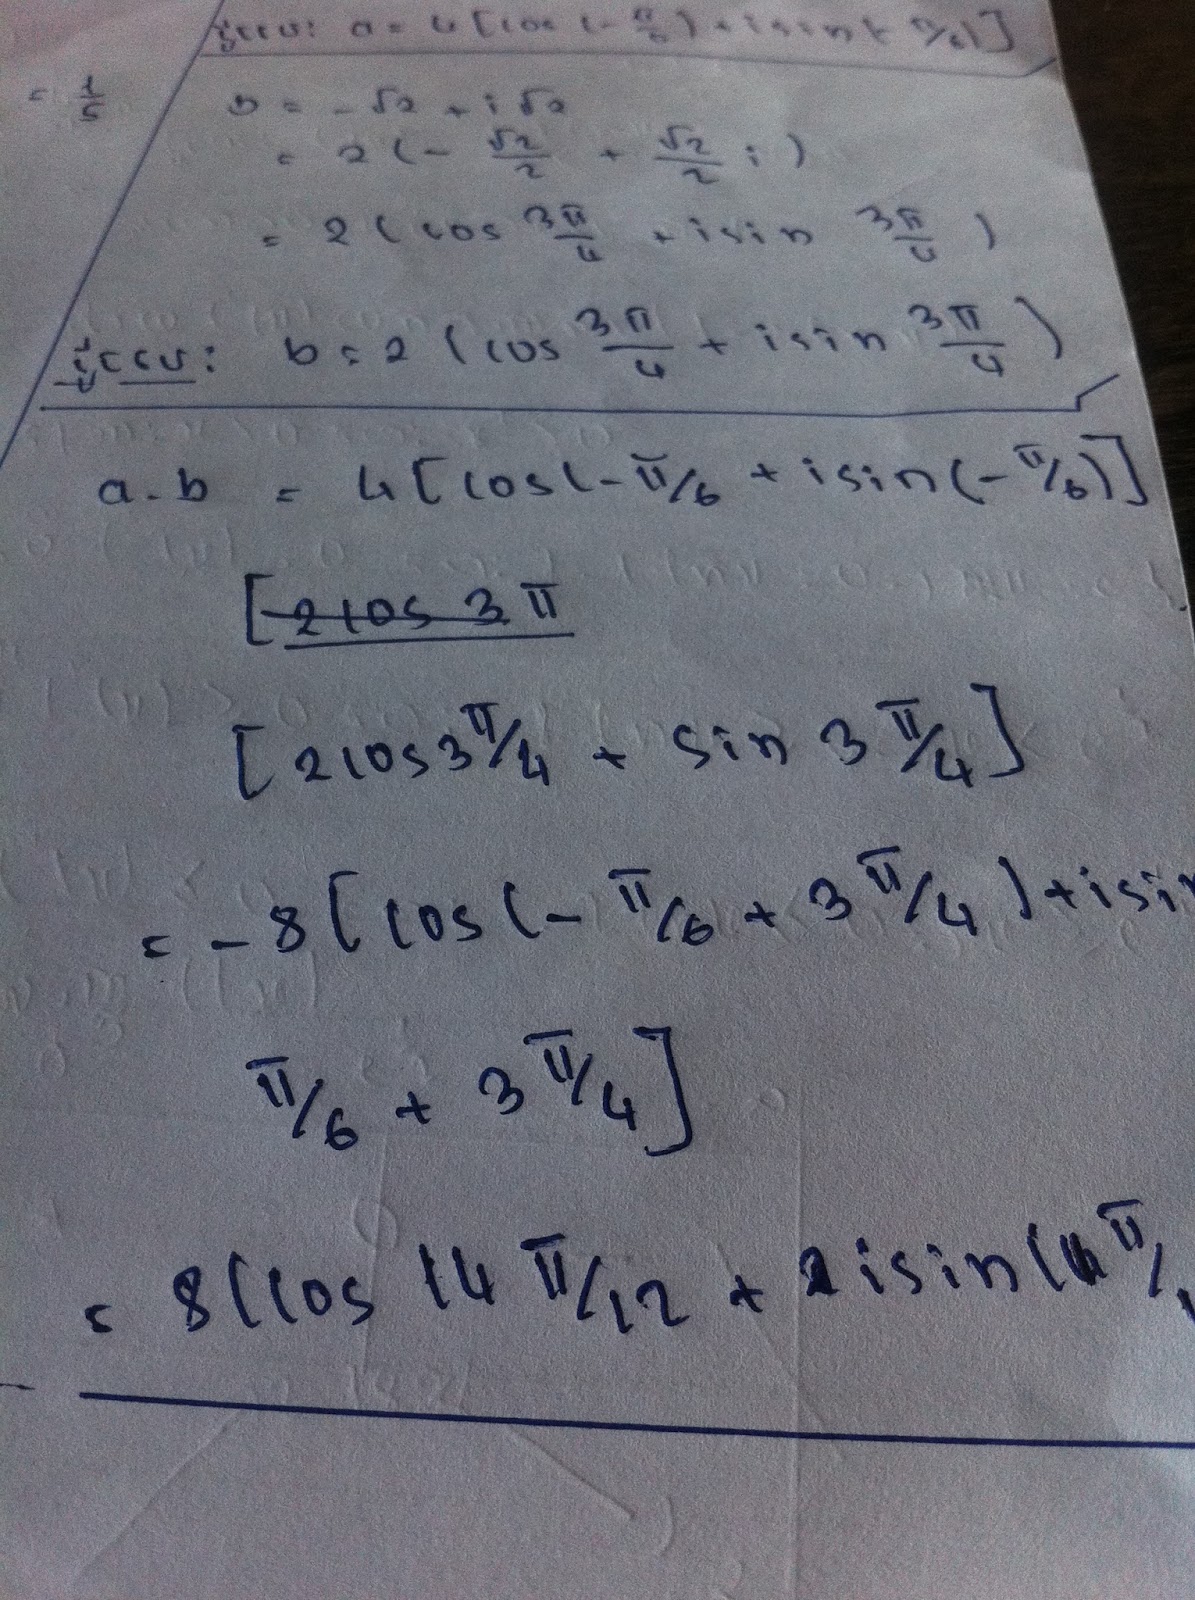 a = 4 [cos (-π/6) + i sin (-π/6)]
= 1/5
b = -√2 + i√2
= 2 (-√2/2 + √2/2 i)
= 2 (cos 3π/4 + i sin 3π/4)
b = 2 (cos 3π/4 + i sin 3π/4)
a.b = 4 [cos(-π/6 + i sin(-π/6)]
[2 cos 3π
[2 cos 3π/4 + sin 3π/4]
= -8 [cos (-π/6 + 3π/4) + i sin
π/6 + 3π/4]
= 8 (cos 14π/12 + i sin (